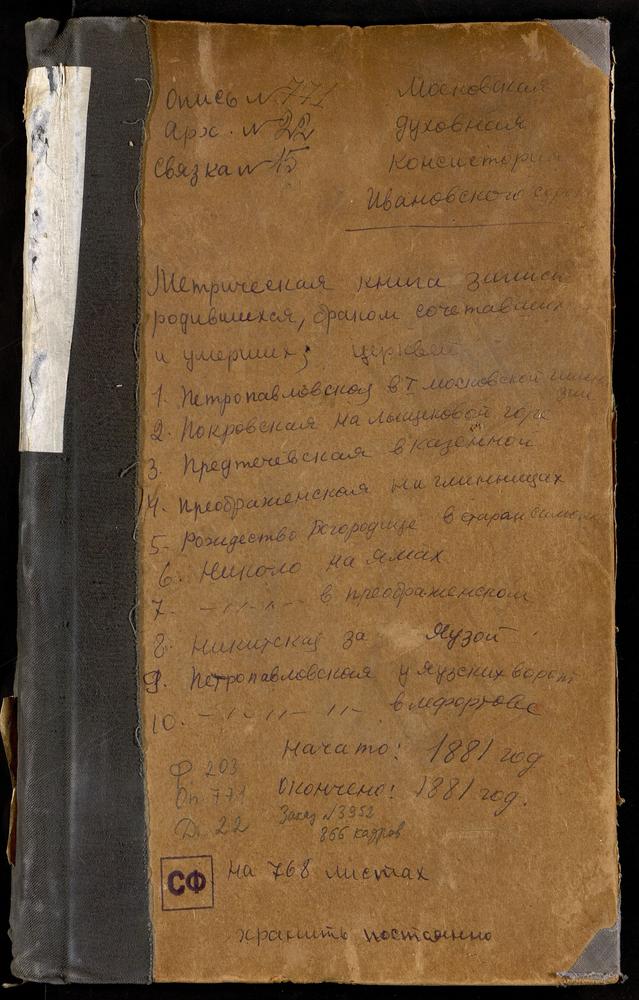 Опись № 771
Арх. № 22
Связка № 15
Московская
духовная
консистория
Ивановского
Метрическая книга записи
родившихся, браком сочетавшихся
и умерших; церквей
1. Петропавловской в I московской
2. Покровская на лыщиковой горе
3. Предтечевская в казенной
4. Преображенская на глинищах
5. Рождество Богородице в старом
6. Николо на ямах
7. – " – " – в преображенском
8. Никитская за Яузой
9. Петропавловская у яузских ворот
10. – " – " – " – в лефортове
начато: 1881 год
Окончено: 1881 год.
Ф 203
Оп 771
Д. 22
Заказ №3952
866 кадров
СФ
на 768 листах
хранить постоянно